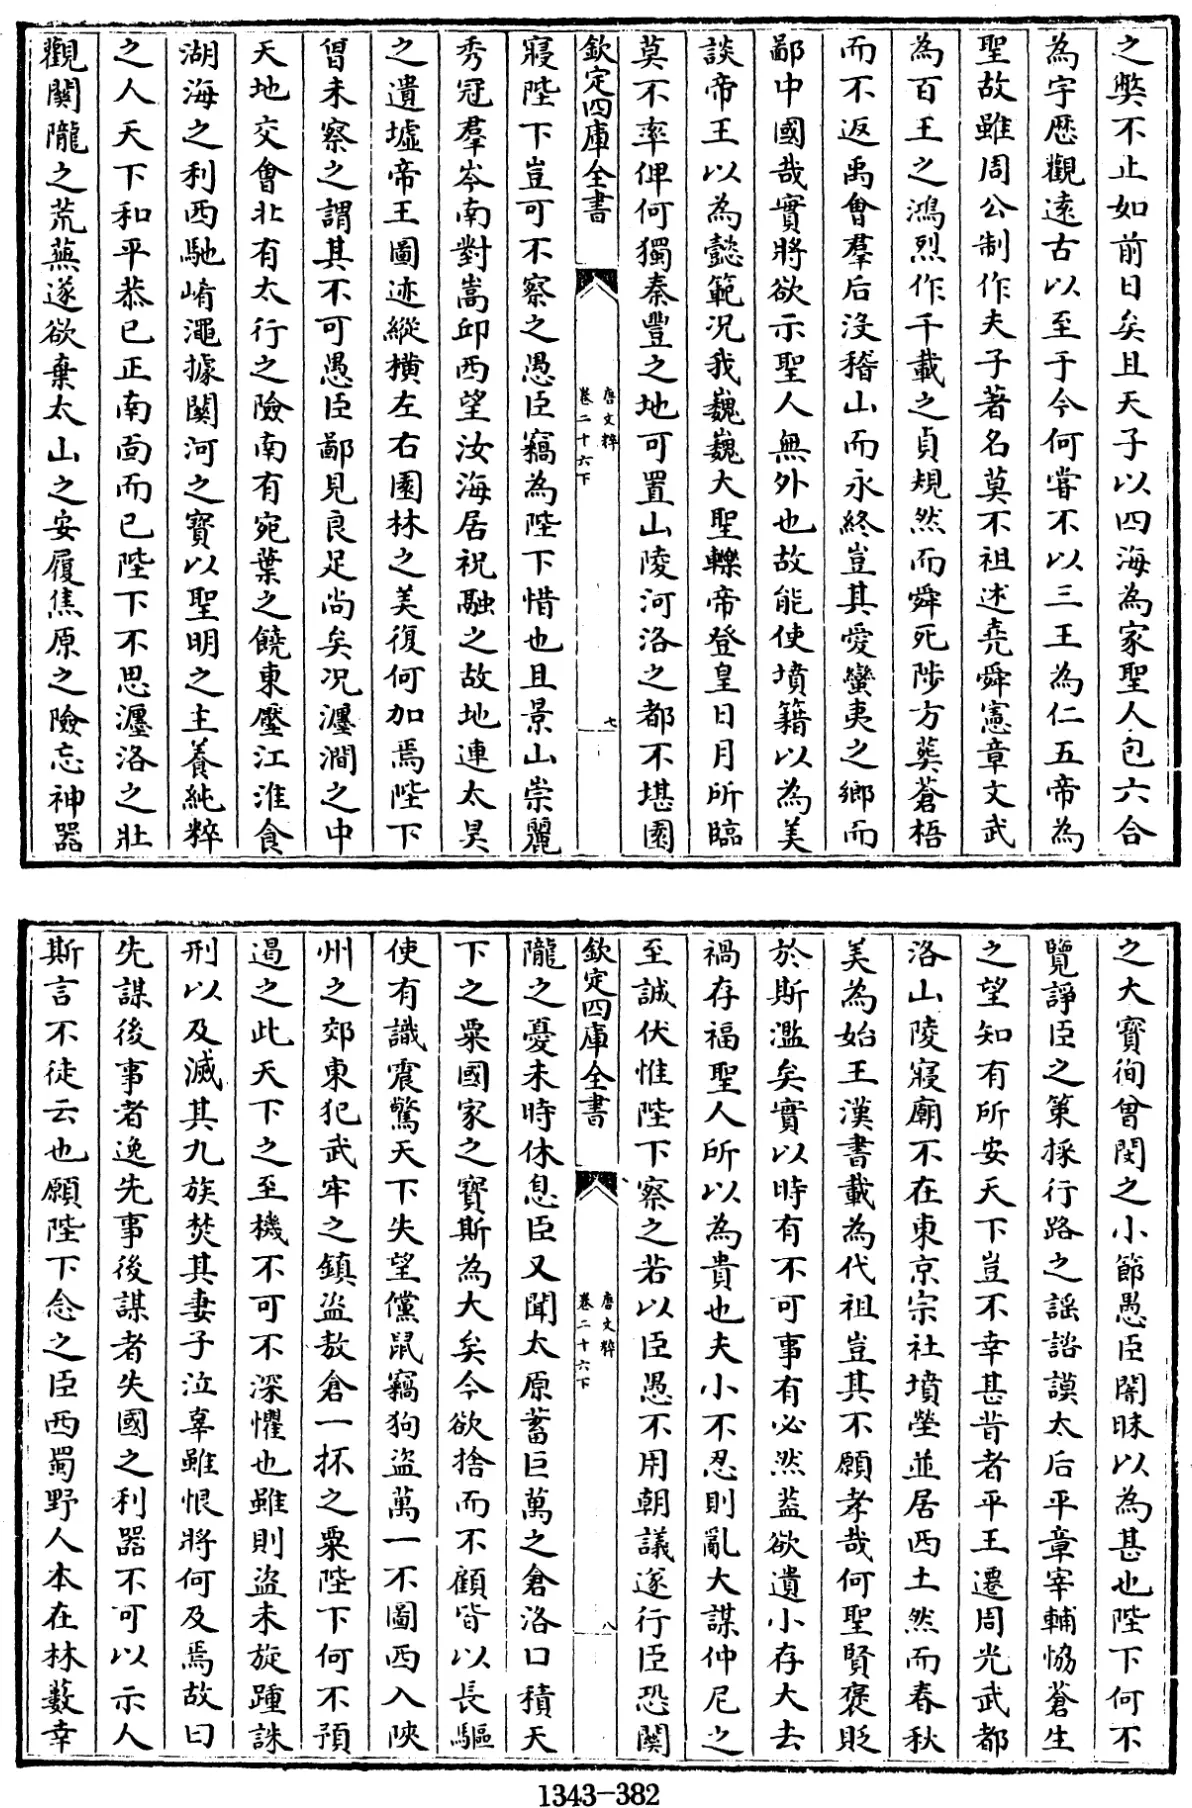 之弊不止如前日矣且天子以四海為家聖人包六合
為宇歴觀遠古以至于今何嘗不以三王為仁五帝為
聖故雖周公制作夫子著名莫不祖述堯舜憲章文武
為百王之鴻烈作千載之貞規然而舜死陟方葬蒼梧
而不返禹會羣后沒稽山而永終豈其愛蠻夷之鄉而
鄙中國哉實將欲示聖人無外也故能使墳籍以為美
談帝王以為懿範况我巍巍大聖轢帝登皇日月所臨
莫不率俾何獨秦豐之地可置山陵河洛之都不堪園
欽定四庫全書
唐文粹
卷二十六下
七
寢陛下豈可不察之愚臣竊為陛下惜也且景山崇麗
秀冠羣岑南對嵩邱西望汝海居祝融之故地連太昊
之遺墟帝王圖迹縱横左右園林之美復何加焉陛下
曾未察之謂其不可愚臣鄙見良足尚矣况瀍澗之中
天地交會北有太行之險南有宛葉之饒東壓江淮食
湖海之利西馳崤澠據關河之寶以聖明之主養純粹
之人天下和平恭已正南面而已陛下不思瀍洛之壯
觀關隴之荒蕪遂欲棄太山之安履焦原之險忘神器
之大寶徇曾閔之小節愚臣闇昧以為甚也陛下何不
覽諍臣之策採行路之謡諮謨太后平章宰輔恊蒼生
之望知有所安天下豈不幸甚昔者平王遷周光武都
洛山陵寢廟不在東京宗社墳塋並居西土然而春秋
美為始王漢書載為代祖豈其不願孝哉何聖賢褒貶
於斯濫矣實以時有不可事有必然葢欲遺小存大去
禍存福聖人所以為貴也夫小不忍則亂大謀仲尼之
至誠伏惟陛下察之若以臣愚不用朝議遂行臣恐關
欽定四庫全書
唐文粹
卷二十六下
八
隴之憂未時休息臣又聞太原蓄巨萬之倉洛口積天
下之粟國家之寶斯為大矣今欲捨而不顧皆以長驅
使有識震驚天下失望儻鼠竊狗盜萬一不圖西入陝
州之郊東犯武牢之鎮盜敖倉一抔之粟陛下何不預
遏之此天下之至機不可不深懼也雖則盜未旋踵誅
刑以及滅其九族焚其妻子泣辜雖恨將何及焉故曰
先謀後事者逸先事後謀者失國之利器不可以示人
斯言不徒云也願陛下念之臣西蜀野人本在林藪幸
1343-382